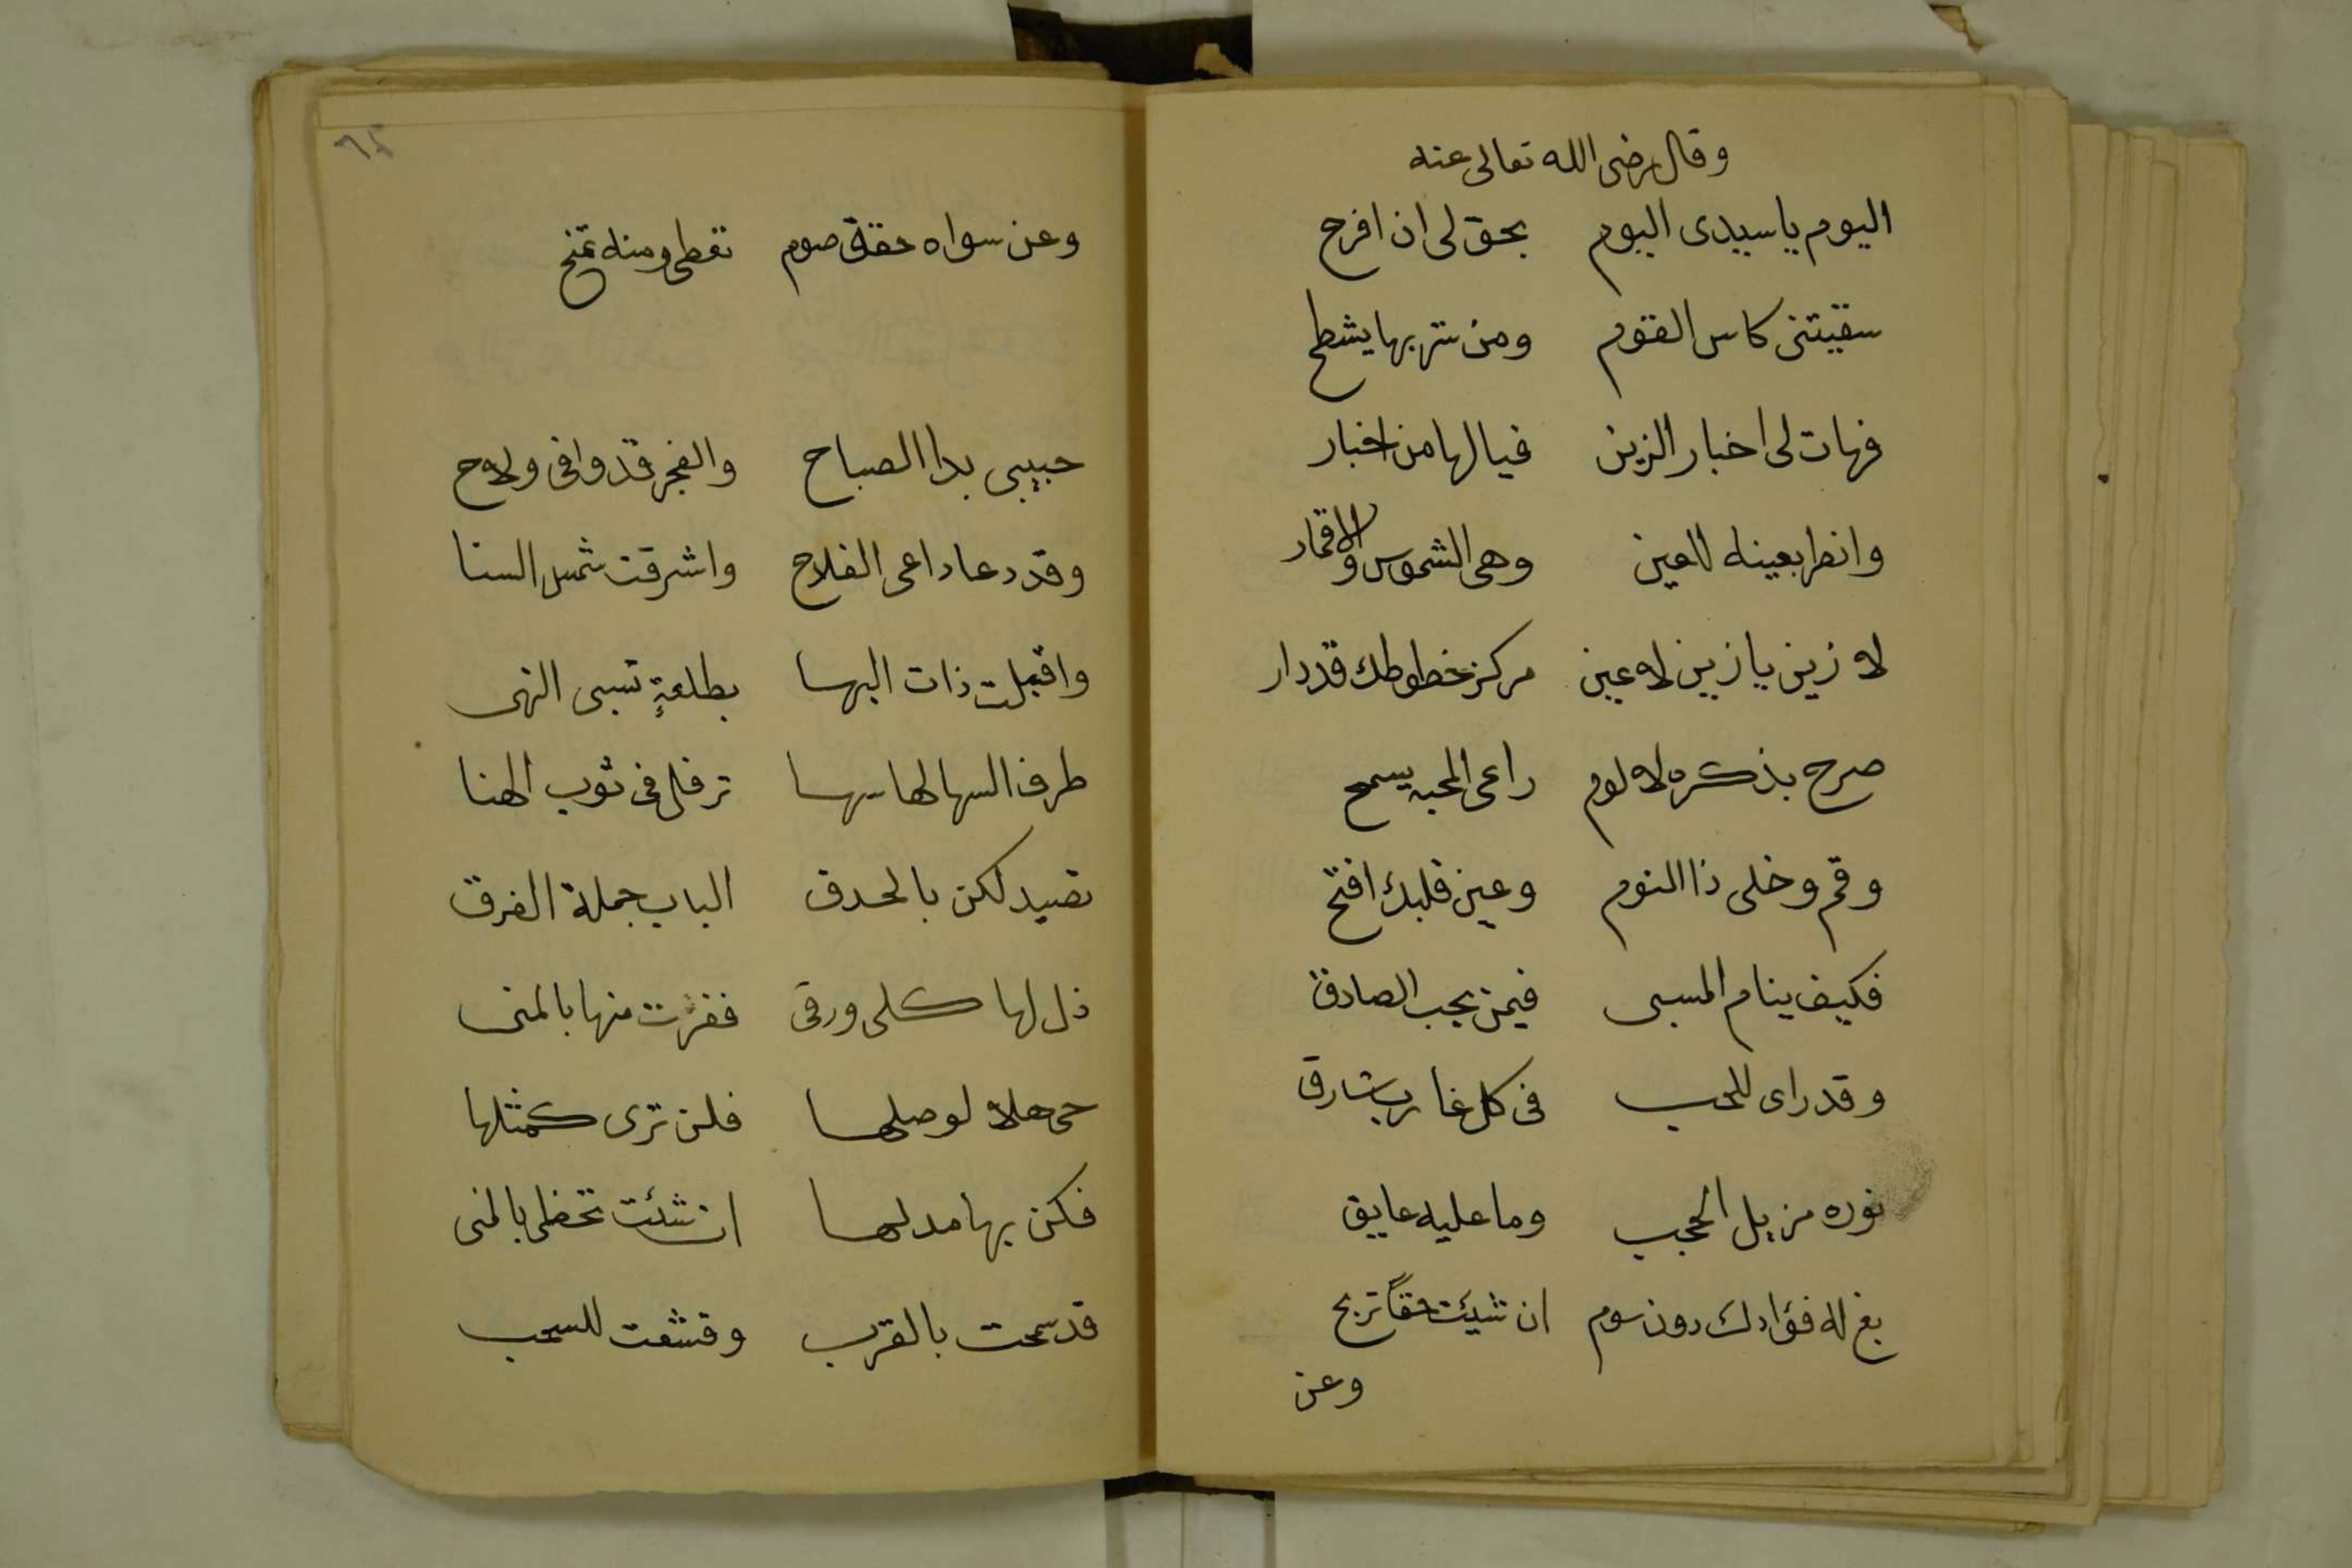 وقال رضى الله تعالى عنه
اليوم يا سيدى اليوم بحق لى ان افرح
سقيتنى كاس القوم ومن شربها يشطح
فهات لى اخبار الزين فيا لها من اخبار
وانظر بعينه للعين وهى الشموس والاقمار
لا زين يا زين لا عين مركز خطوطك قد دار
صرح بذكره لا لوم راعى المحبه يسمح
وقم وخلى ذا النوم وعين قلبك افتح
فكيف ينام المسبى فيمن يحب الصادق
وقد راى للحب فى كل غارب شارق
نوره مزيل الحجب وما عليه عايق
بع له فؤادك دون سوم ان شيئت حقاً تربح
وعن
٦٤
وعن سواه حقق صوم تعطى ومنه تمنح
حبيبى بدا الصباح والفجر قد وافى ولاح
وقد دعا داعى الفلاح واشرقت شمس السنا
واقبلت ذات البها بطلعةٍ تسبى النهى
طرف السها لها سها ترفل فى ثوب الهنا
تصيد لكن بالحدق الباب جملة الفرق
ذل لها كلى ورق ففزت منها بالمنى
حى هلا لوصلها فلن ترى كمثلها
فكن بها مدلها ان شئت تحظى بالمنى
قد سمحت بالقرب وقشعت للسحب